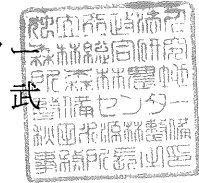 一武
独立行政法人
森林総合研究
所森林農地
整備センター
秋田水源林整備
事務所長之印